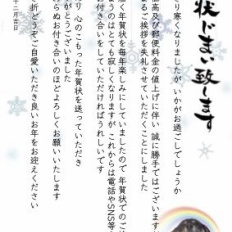 状じまい致します
り寒くなりましたが いかがお過ごしでしょうか
高及び郵便料金の値上げに伴い 誠に勝手ではございます
るご挨拶を失礼させていただくことにしました
く年賀状を毎年楽しみにしていましたので年賀状でのご
のはとても寂しくなりますが これからは電話やSNS等
お付き合いをしていただければうれしいです
り 心のこもった年賀状を送っていただき
がとうございました
らぬお付き合いのほどよろしくお願いいたします
折どうぞご自愛いただき良いお年をお迎えください
十二月吉日